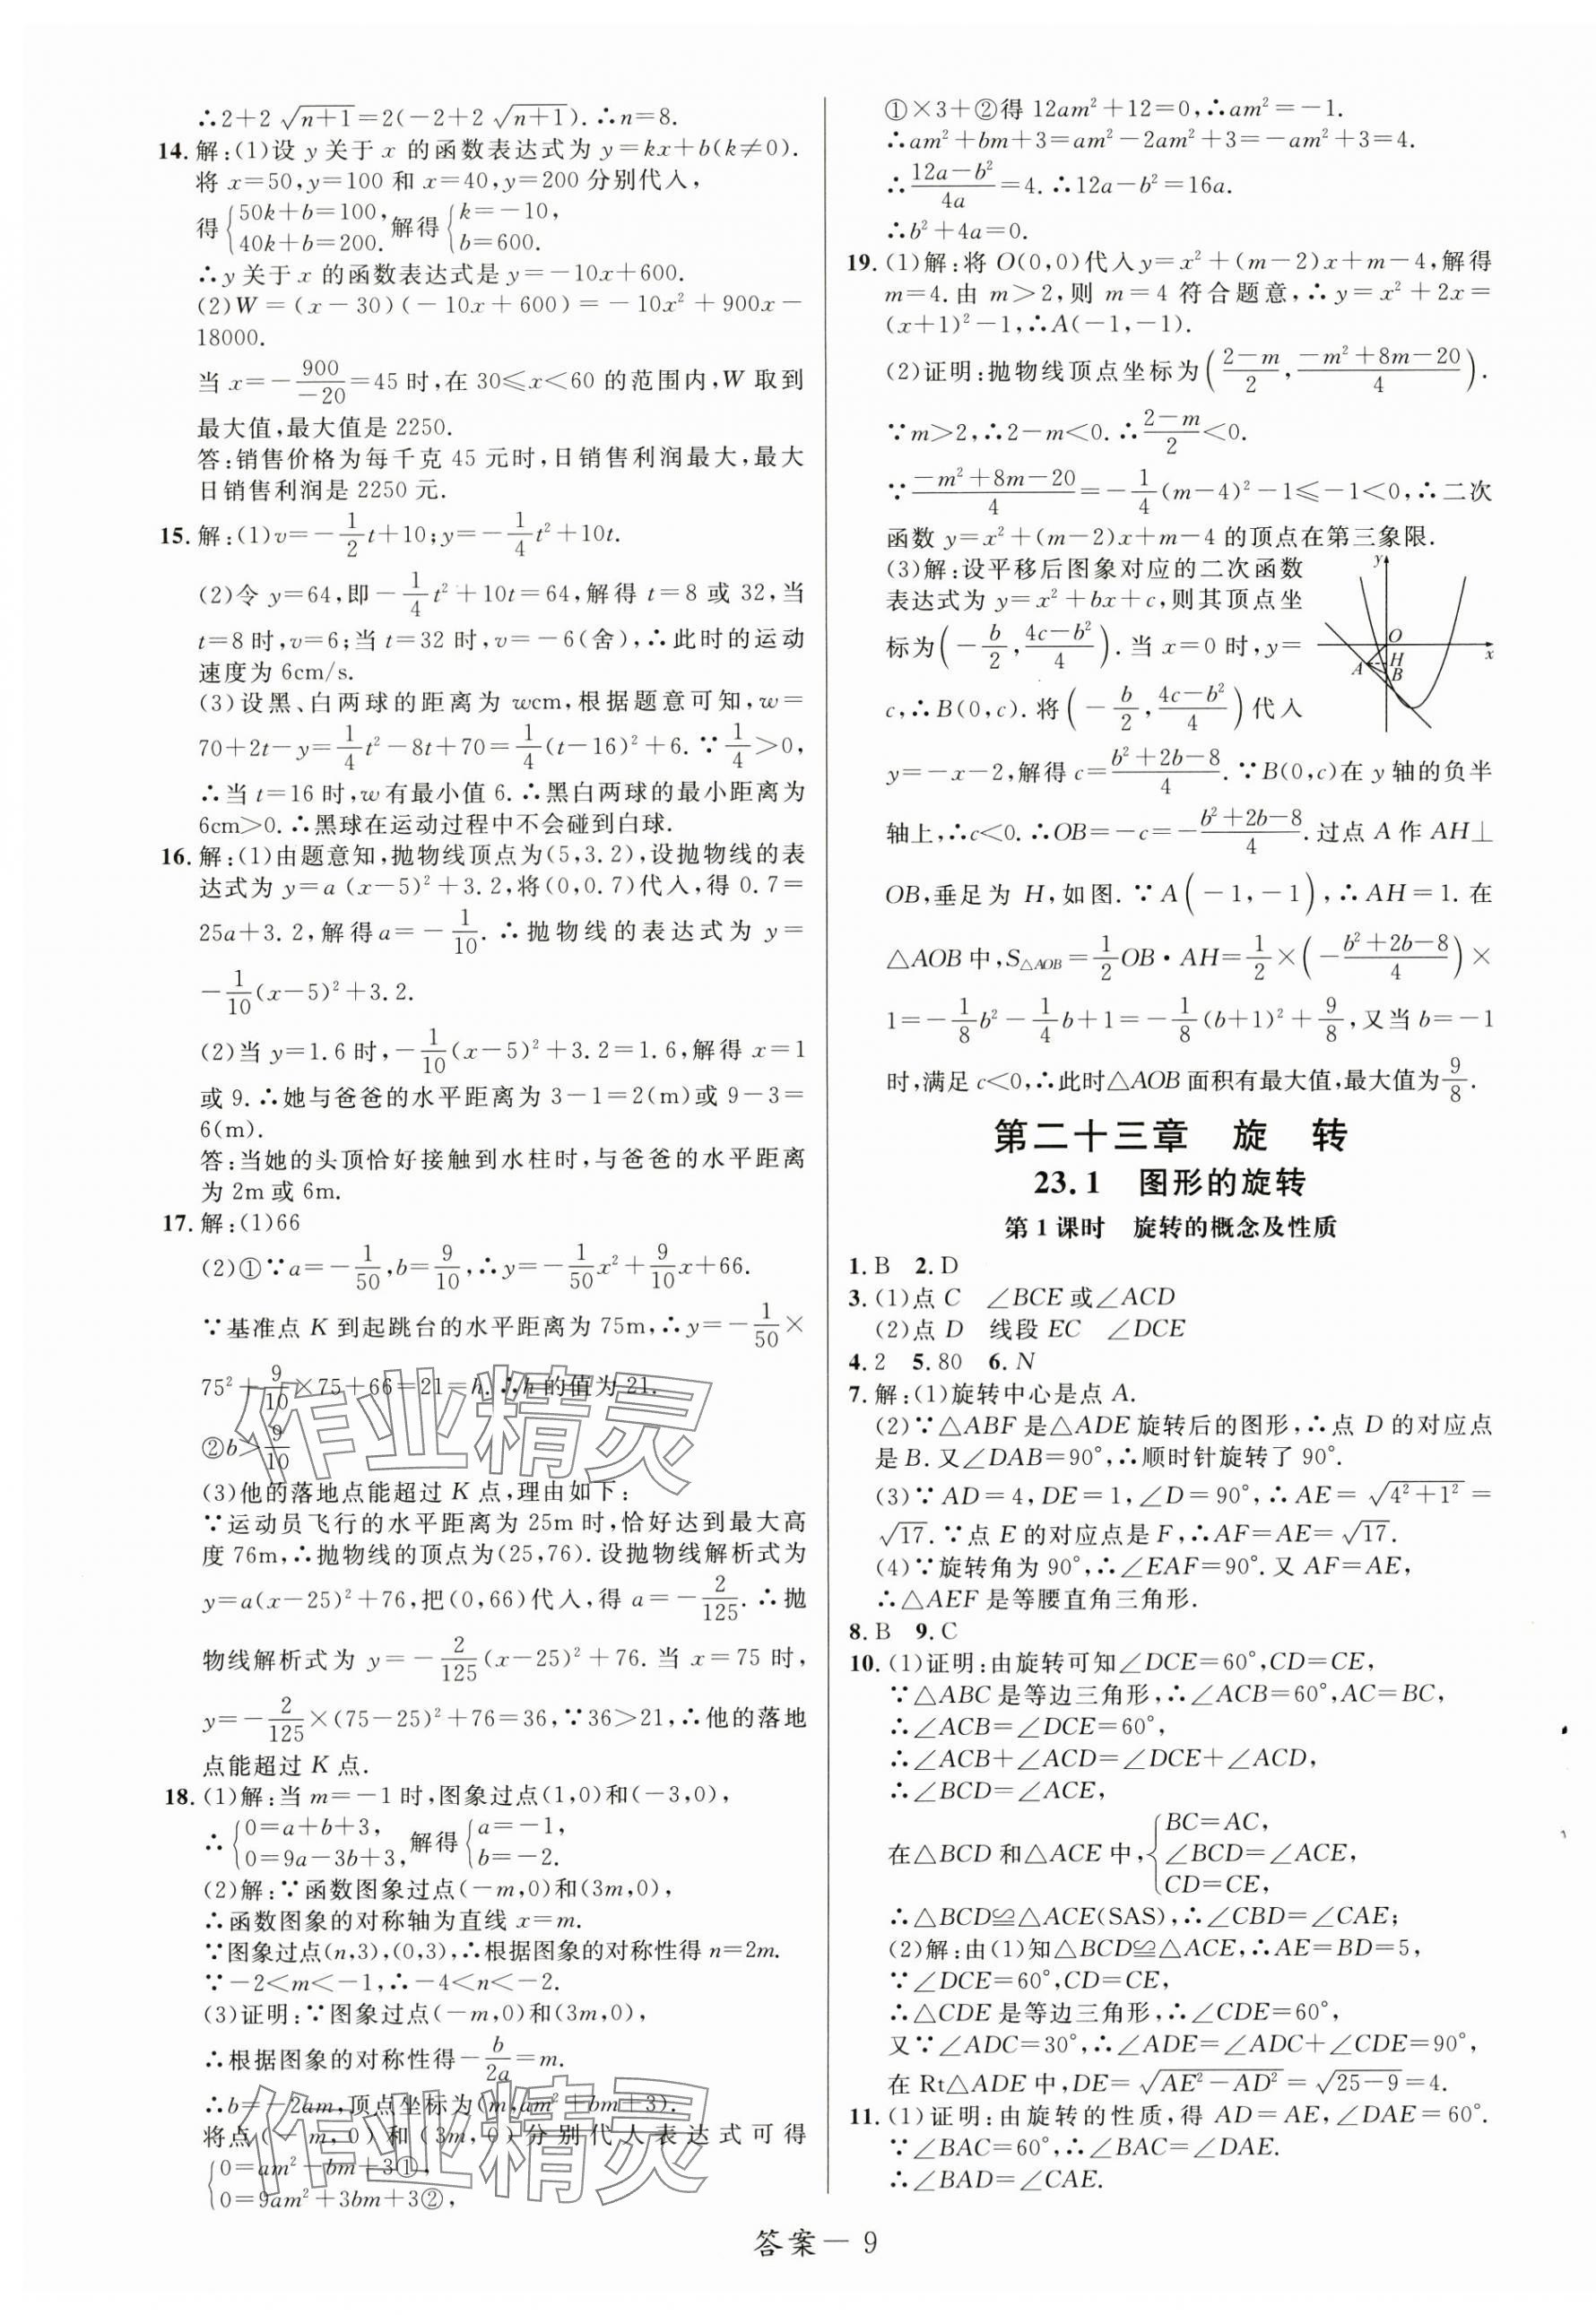 ∴2+2√(n+1)=2(-2+2√(n+1)). ∴n=8.
14. 解:(1)设 y 关于 x 的函数表达式为 y=kx+b(k≠0).
将 x=50,y=100 和 x=40,y=200 分别代入,
得{50k+b=100, 40k+b=200. 解得{k=-10, b=600.
∴y 关于 x 的函数表达式是 y=-10x+600.
(2)W=(x-30)(-10x+600)=-10x²+900x-
18000.
当 x=-900/-20=45 时,在 30≤x<60 的范围内,W 取到
最大值,最大值是 2250.
答:销售价格为每千克 45 元时,日销售利润最大,最大
日销售利润是 2250 元.
15. 解:(1)v=-1/2t+10;y=-1/4t²+10t.
(2)令 y=64,即-1/4t²+10t=64,解得 t=8 或 32,当
t=8 时,v=6;当 t=32 时,v=-6(舍),∴此时的运动
速度为 6cm/s.
(3)设黑、白两球的距离为 wcm,根据题意可知,w=
70+2t-y=1/4t²-8t+70=1/4(t-16)²+6. ∵1/4>0,
∴当 t=16 时,w 有最小值 6. ∴黑白两球的最小距离为
6cm>0. ∴黑球在运动过程中不会碰到白球.
16. 解:(1)由题意知,抛物线顶点为(5,3.2),设抛物线的表
达式为 y=a(x-5)²+3.2,将(0,0.7)代入,得 0.7=
25a+3.2,解得a=-1/10. ∴抛物线的表达式为 y=
-1/10(x-5)²+3.2.
(2)当 y=1.6 时,-1/10(x-5)²+3.2=1.6,解得 x=1
或 9. ∴她与爸爸的水平距离为 3-1=2(m)或 9-3=
6(m).
答:当她的头顶恰好接触到水柱时,与爸爸的水平距离
为 2m 或 6m.
17. 解:(1)66
(2)①∵a=-1/50,b=9/10,∴y=-1/50x²+9/10x+66.
∵基准点 K 到起跳台的水平距离为 75m,∴y=-1/50×
75²+9/10×75+66=21=h. ∴h 的值为 21.
②b>9/10
(3)他的落地点能超过 K 点,理由如下:
∵运动员飞行的水平距离为 25m 时,恰好达到最大高
度 76m,∴抛物线的顶点为(25,76). 设抛物线解析式为
y=a(x-25)²+76,把(0,66)代入,得 a=-2/125. ∴抛
物线解析式为 y=-2/125(x-25)²+76. 当 x=75 时,
y=-2/125×(75-25)²+76=36,∵36>21,∴他的落地
点能超过 K 点.
18. (1)解:当 m=-1 时,图象过点(1,0)和(-3,0),
∴{0=a+b+3, 0=9a-3b+3, 解得{a=-1, b=-2.
(2)解:∵函数图象过点(-m,0)和(3m,0),
∴函数图象的对称轴为直线 x=m.
∵图象过点(n,3),(0,3),∴根据图象的对称性得 n=2m.
∵-2<m<-1,∴-4<n<-2.
(3)证明:∵图象过点(-m,0)和(3m,0),
∴根据图象的对称性得-b/2a=m.
∴b=-2am,顶点坐标为(m,am²+bm+3).
将点(-m,0)和(3m,0)分别代入表达式可得
{0=am²-bm+3①,
0=9am²+3bm+3②,
①×3+②得 12am²+12=0,∴am²=-1.
∴am²+bm+3=am²-2am²+3=-am²+3=4.
∴(12a-b²)/4a=4. ∴12a-b²=16a.
∴b²+4a=0.
19. (1)解:将 O(0,0)代入y=x²+(m-2)x+m-4,解得
m=4. 由 m>2,则 m=4 符合题意,∴y=x²+2x=
(x+1)²-1,∴A(-1,-1).
(2)证明:抛物线顶点坐标为((2-m)/2,(-m²+8m-20)/4).
∵m>2,∴2-m<0. ∴(2-m)/2<0.
∵(-m²+8m-20)/4=-1/4(m-4)²-1≤-1<0,∴二次
函数 y=x²+(m-2)x+m-4 的顶点在第三象限.
(3)解:设平移后图象对应的二次函数
表达式为 y=x²+bx+c,则其顶点坐
标为(-b/2,(4c-b²)/4). 当 x=0 时,y=
c,∴B(0,c). 将(-b/2,(4c-b²)/4)代入
y
O
x
A
H
B
y=-x-2,解得 c=(b²+2b-8)/4. ∵B(0,c)在 y 轴的负半
轴上,∴c<0. ∴OB=-c=-(b²+2b-8)/4. 过点 A 作 AH⊥
OB,垂足为 H,如图. ∵A(-1,-1),∴AH=1. 在
△AOB 中,S△AOB=1/2OB·AH=1/2×(-(b²+2b-8)/4)×
1=-1/8b²-1/4b+1=-1/8(b+1)²+9/8,又当 b=-1
时,满足 c<0,∴此时△AOB 面积有最大值,最大值为9/8.
第二十三章 旋 转
23.1 图形的旋转
第 1 课时 旋转的概念及性质
1. B 2. D
3. (1)点 C ∠BCE 或∠ACD
(2)点 D 线段 EC ∠DCE
4. 2 5. 80 6. N
7. 解:(1)旋转中心是点 A.
(2)∵△ABF 是△ADE 旋转后的图形,∴点 D 的对应点
是 B. 又∠DAB=90°,∴顺时针旋转了 90°.
(3)∵AD=4,DE=1,∠D=90°,∴AE=√(4²+1²)=
√17. ∵点 E 的对应点是 F,∴AF=AE=√17.
(4)∵旋转角为 90°,∴∠EAF=90°. 又 AF=AE,
∴△AEF 是等腰直角三角形.
8. B 9. C
10. (1)证明:由旋转可知∠DCE=60°,CD=CE,
∵△ABC 是等边三角形,∴∠ACB=60°,AC=BC,
∴∠ACB=∠DCE=60°,
∴∠ACB+∠ACD=∠DCE+∠ACD,
∴∠BCD=∠ACE,
在△BCD 和△ACE 中,{BC=AC, ∠BCD=∠ACE, CD=CE,
∴△BCD≌△ACE(SAS),∴∠CBD=∠CAE;
(2)解:由(1)知△BCD≌△ACE,∴AE=BD=5,
∵∠DCE=60°,CD=CE,
∴△CDE 是等边三角形,∴∠CDE=60°,
又∵∠ADC=30°,∴∠ADE=∠ADC+∠CDE=90°,
在 Rt△ADE 中,DE=√(AE²-AD²)=√(25-9)=4.
11. (1)证明:由旋转的性质,得 AD=AE,∠DAE=60°.
∵∠BAC=60°,∴∠BAC=∠DAE.
∴∠BAD=∠CAE.
答案－9
作业精灵
作业精灵